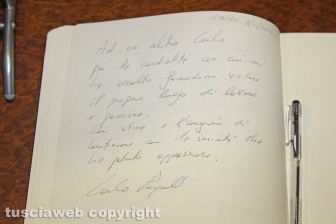 Ad un altro Carlo
per la cordialità con cui mi
ha accolto facendomi visitare
il proprio luogo di lavoro
e passione.
Con stima e l'augurio di
continuare con la serietà che
ho potuto apprezzare.
Carlo
tusciaweb copyright